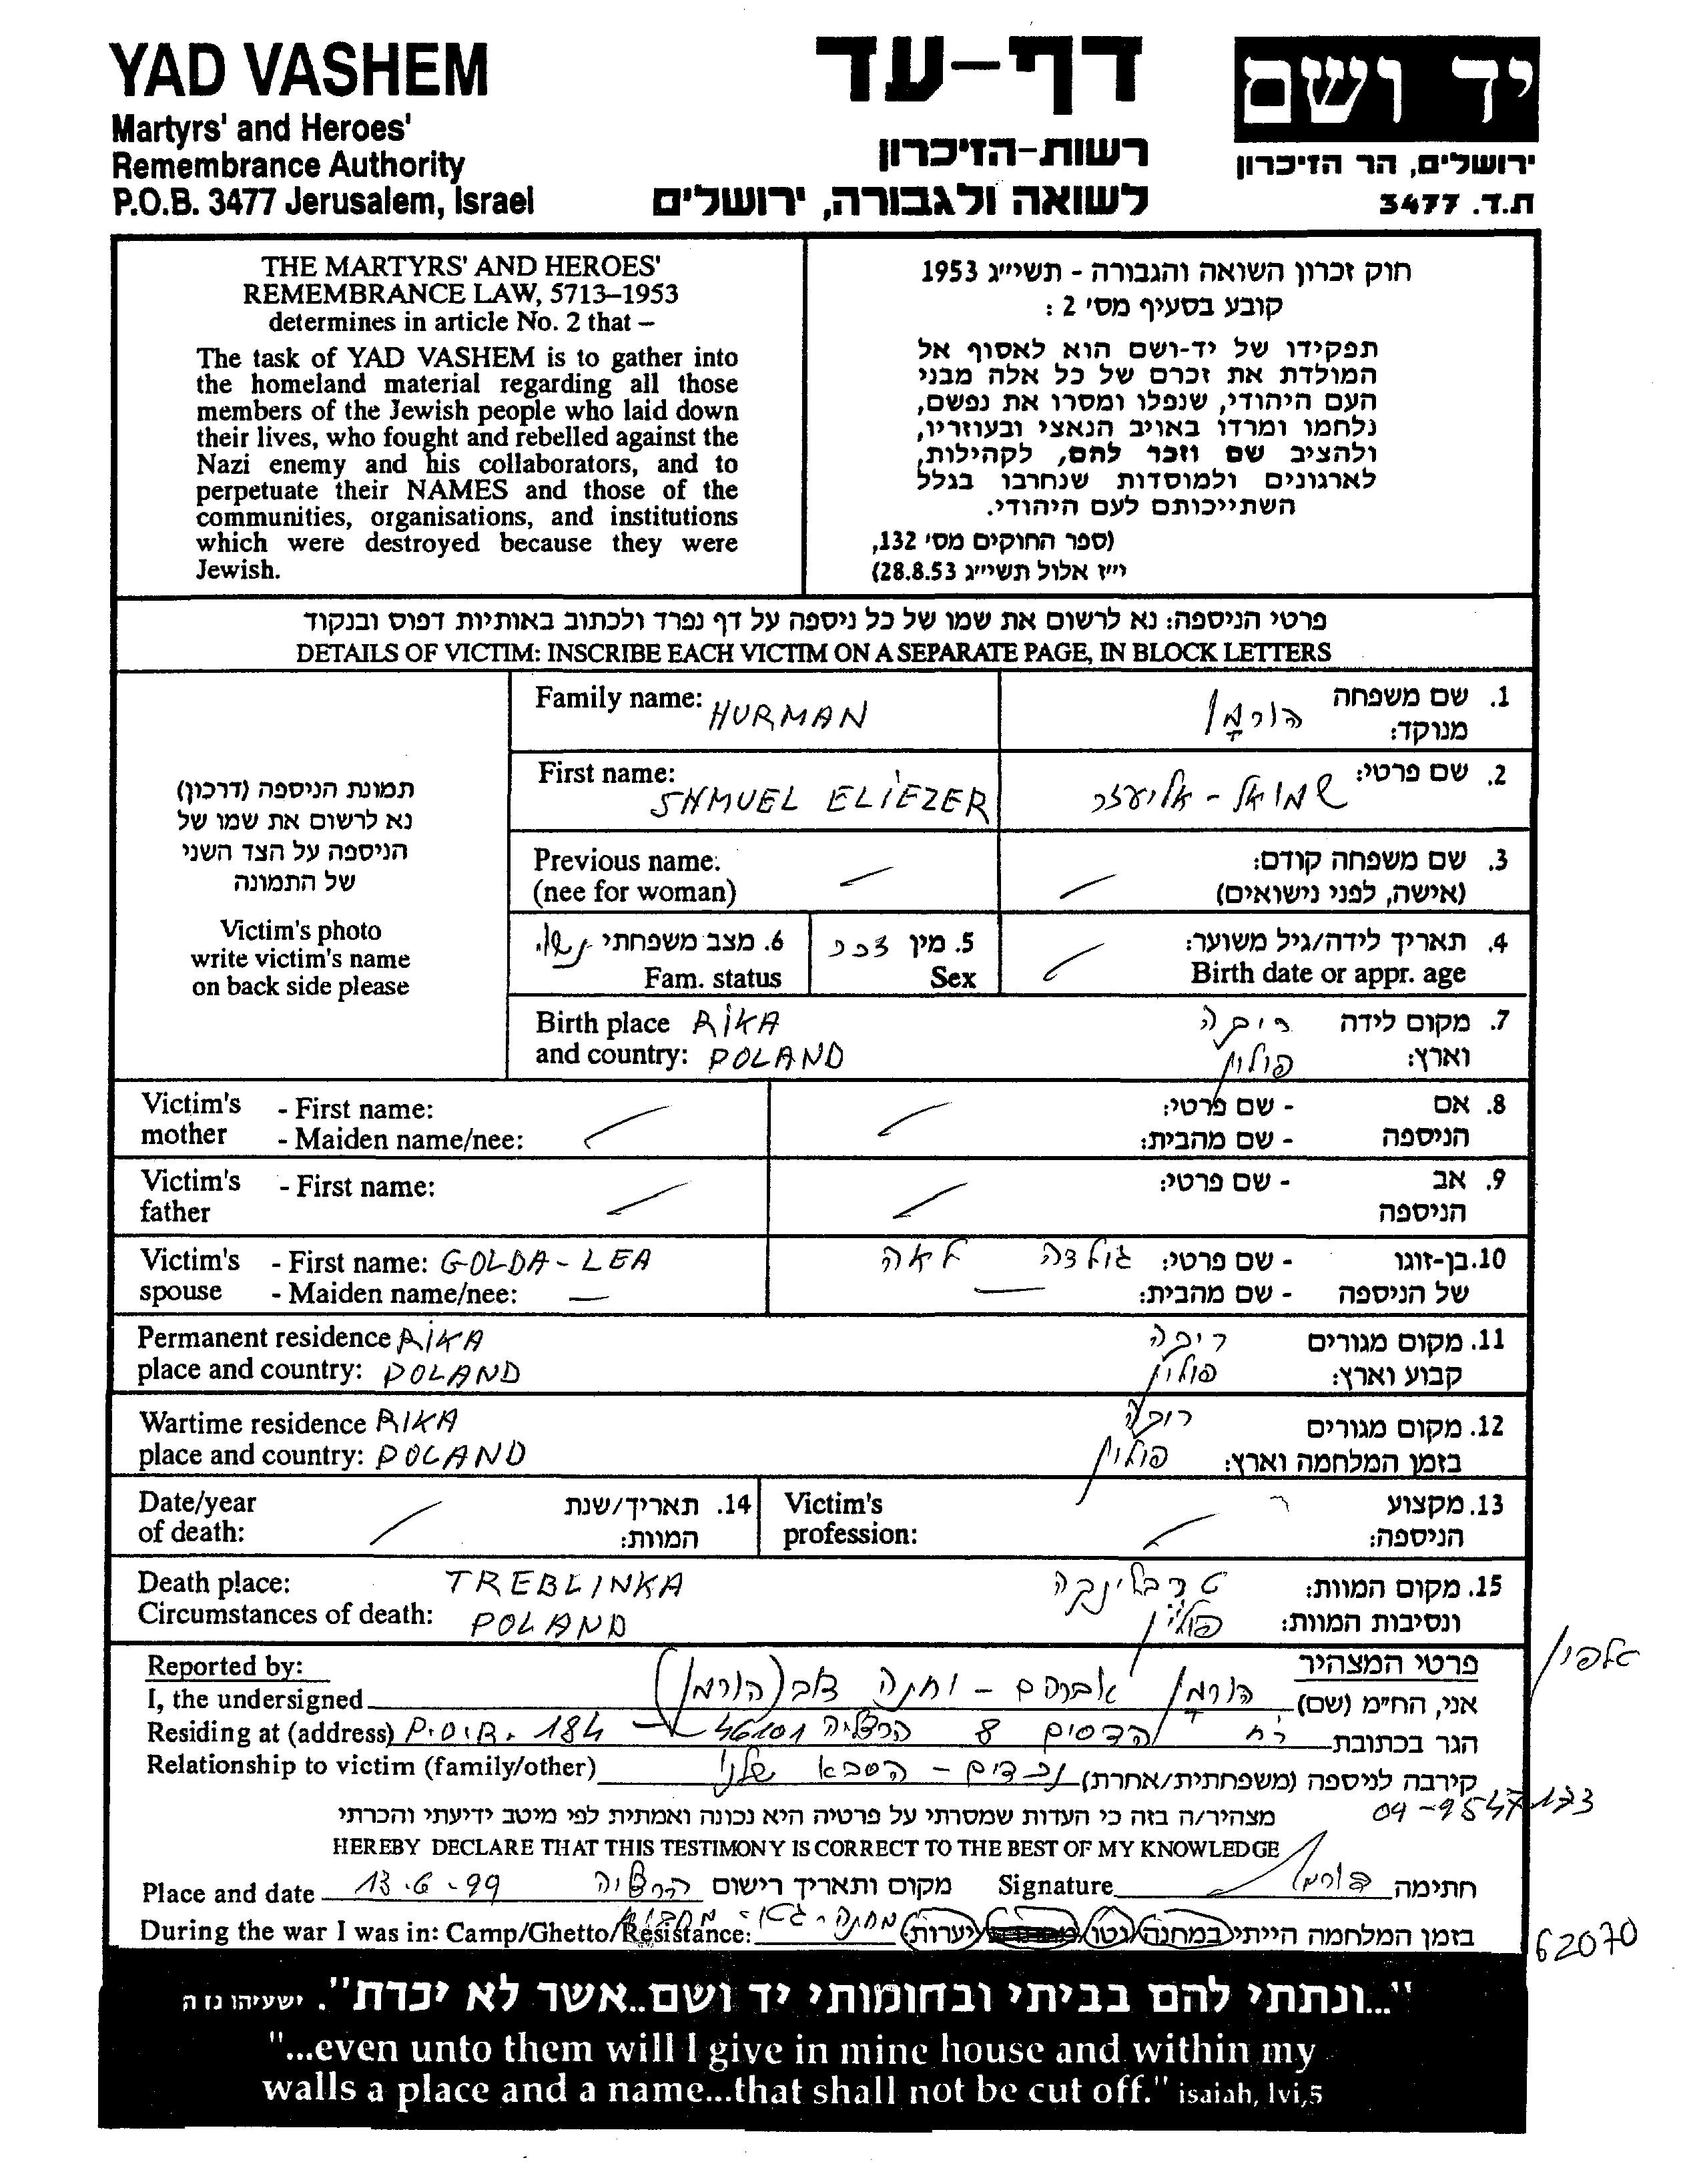 YAD VASHEM
Martyrs' and Heroes'
Remembrance Authority
P.O.B. 3477 Jerusalem, Israel
דף-עד
רשות-הזיכרון
לשואה ולגבורה, ירושלים
יד ושם
ירושלים, הר הזיכרון
ת.ד. 3477
THE MARTYRS' AND HEROES'
REMEMBRANCE LAW, 5713–1953
determines in article No. 2 that –
The task of YAD VASHEM is to gather into
the homeland material regarding all those
members of the Jewish people who laid down
their lives, who fought and rebelled against the
Nazi enemy and his collaborators, and to
perpetuate their NAMES and those of the
communities, organisations, and institutions
which were destroyed because they were
Jewish.
חוק זכרון השואה והגבורה - תשי״ג 1953
קובע בסעיף מס' 2 :
תפקידו של יד-ושם הוא לאסוף אל
המולדת את זכרם של כל אלה מבני
העם היהודי, שנפלו ומסרו את נפשם,
נלחמו ומרדו באויב הנאצי ובעוזריו,
ולהציב שם וזכר להם, לקהילות,
לארגונים ולמוסדות שנחרבו בגלל
השתייכותם לעם היהודי.
(ספר החוקים מס' 132,
י״ז אלול תשי״ג 28.8.53)
פרטי הניספה: נא לרשום את שמו של כל ניספה על דף נפרד ולכתוב באותיות דפוס ובנקוד
DETAILS OF VICTIM: INSCRIBE EACH VICTIM ON A SEPARATE PAGE, IN BLOCK LETTERS
תמונת הניספה (דרכון)
נא לרשום את שמו של
הניספה על הצד השני
של התמונה
Victim's photo
write victim's name
on back side please
Family name: HURMAN
1. שם משפחה מנוקד: הורמָן
First name: SHMUEL ELIEZER
2. שם פרטי: שמואל - אליעזר
Previous name:
(nee for woman)
3. שם משפחה קודם:
(אישה, לפני נישואים)
4. תאריך לידה/גיל משוער:
Birth date or appr. age
5. מין זכר
Sex
6. מצב משפחתי נשוי
Fam. status
Birth place RIKA
and country: POLAND
7. מקום לידה ריקה
וארץ: פולין
Victim's mother - First name:
- Maiden name/nee:
8. אם הניספה - שם פרטי:
- שם מהבית:
Victim's father - First name:
9. אב הניספה - שם פרטי:
Victim's spouse - First name: GOLDA - LEA
- Maiden name/nee: —
10. בן-זוגו של הניספה - שם פרטי: גולדה לאה
- שם מהבית: —
Permanent residence RIKA
place and country: POLAND
11. מקום מגורים ריקה
קבוע וארץ: פולין
Wartime residence RIKA
place and country: POLAND
12. מקום מגורים ריקה
בזמן המלחמה וארץ: פולין
Date/year
of death:
14. תאריך/שנת
המוות:
Victim's
profession:
13. מקצוע
הניספה:
Death place: TREBLINKA
Circumstances of death: POLAND
15. מקום המוות: טרבלינקה
ונסיבות המוות: פולין
Reported by:
פרטי המצהיר
I, the undersigned
אני, הח״מ (שם) הורמָן אברהם - וחנה (הורמן)
Residing at (address) P.O.B. 184
הגר בכתובת רח הדסים 8 הרצליה 46101
Relationship to victim (family/other)
קירבה לניספה (משפחתית/אחרת) נכדים - הסבא שלנו
09-9547173
מצהיר/ה בזה כי העדות שמסרתי על פרטיה היא נכונה ואמתית לפי מיטב ידיעתי והכרתי
HEREBY DECLARE THAT THIS TESTIMONY IS CORRECT TO THE BEST OF MY KNOWLEDGE
Place and date 13.6.99
מקום ותאריך רישום הרצליה
Signature
חתימה הורמן
During the war I was in: Camp/Ghetto/Resistance:
בזמן המלחמה הייתי במחנה/גטו/יערות:
62070
"...ונתתי להם בביתי ובחומותי יד ושם..אשר לא יכרת". ישעיהו נו ה
"...even unto them will I give in mine house and within my
walls a place and a name...that shall not be cut off." isaiah, lvi,5